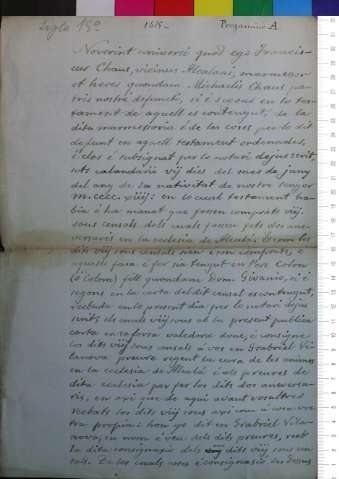 Siglo 15º 1515- Pergamino A
Noverint universi quod ego Francis-
cus Chaus, vicinus Alcalani, marmessor
et heres quondam Michaelis Chaus pa-
tris nostri defuncti, si é segons en lo tes-
tament de aquell es contengut, de la
dita marmessoria é de les coses per lo dit
defunt en aquell testament ordenades,
clos é subsignat per lo notari dejus scrit,
sots calendario vij dies del mes de juny
del any de la nativitat de nostre senyor
m. cccc. viiij: en lo cual testament ha-
bia é ha manat que fossen comprats viij.
sous censals dels cuals fossen fets dos ani-
versaris en la eclesia de Alcalá. E com los
dits viij sous censals sien é son comprats, é
aquells fasa é sia tengut en Pere Colom
fill quondam Dom Givanio, si é
segons en la carta del dit censal es contengut,
rebuda en lo present dia per lo notari dejus
scrit; els cuals viij sous ab la present publica
carta en valedora done, é consigne
los dits viij sous censals a vos en Grabriel Vi-
lanova prevere regent la cura de les animes
en la ecclesia de Alcalá é als preveres de
dita ecclesia per fer los dits dos aniversa-
ris, en axi que de aqui avant vosaltres
rebats los dits viij sous axi com á cosa vos-
tra propia: hon yo dit en Grabriel Vila-
nova, en nom é veu dels dits preveres, reb
la dita consignasió dels dits viij sous cen-
sals. De les cuals coses é consignasió sus dessus